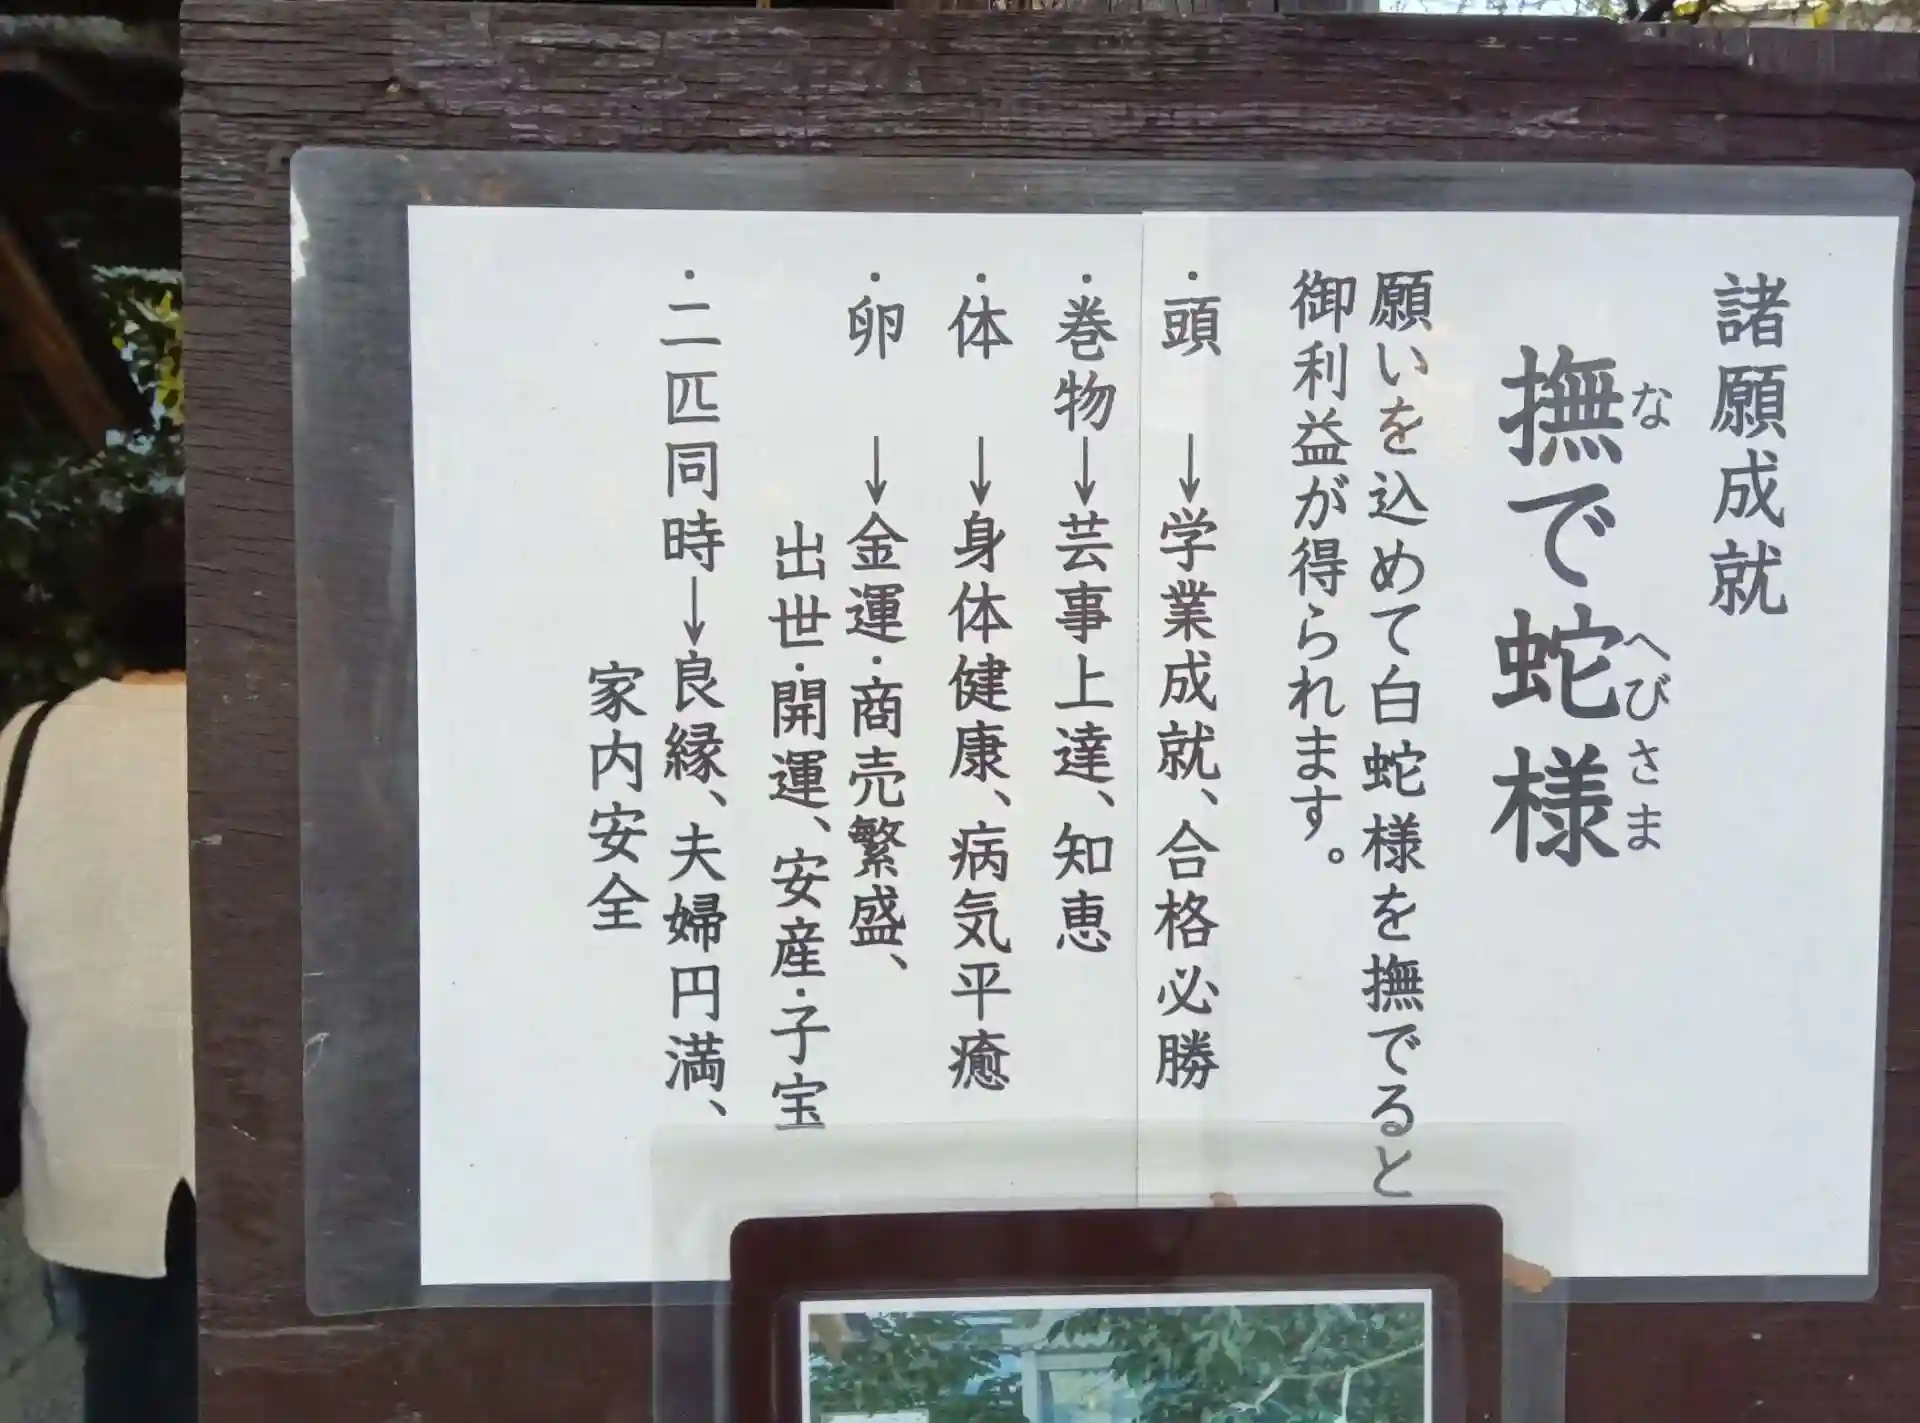 諸願成就
撫で蛇様
な
へびさま
願いを込めて白蛇様を撫でると
御利益が得られます。
・頭　→学業成就、合格必勝
・巻物→芸事上達、知恵
・体　→身体健康、病気平癒
・卵　→金運・商売繁盛、
出世・開運、安産・子宝
・二匹同時→良縁、夫婦円満、
家内安全